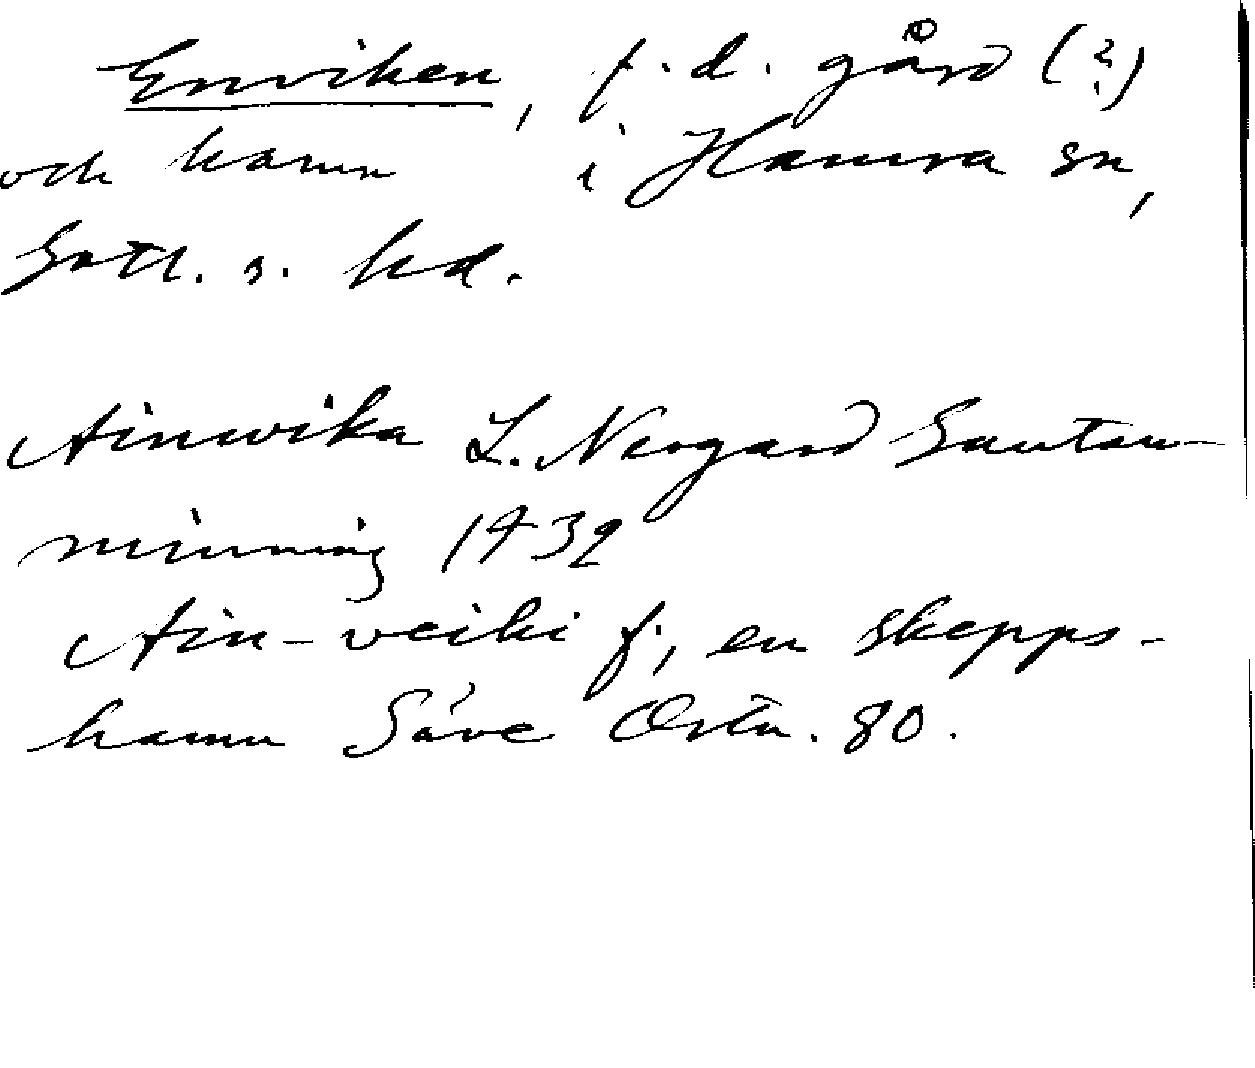 Enviken, f. d. gård (?)
och hamn i Hamra sn,
Gotl. s. hd.
Ainwika L. Neogard Gautau-
minning 1732
Ain-veiki f, en skepps-
hamn Säve Ortn. 80.